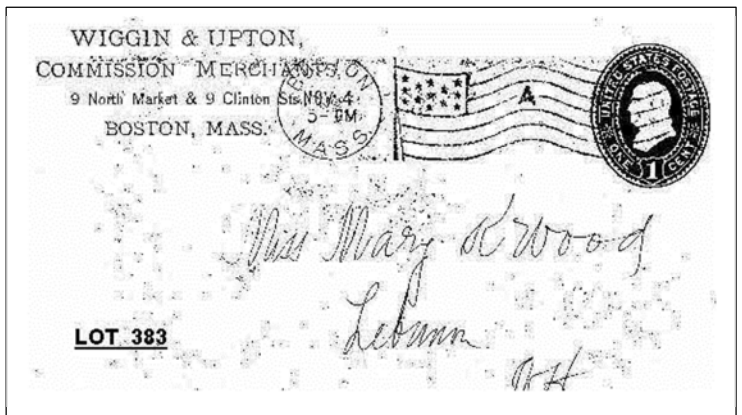 WIGGIN & UPTON,
COMMISSION MERCHANTS,
9 North Market & 9 Clinton Sts.
BOSTON, MASS.
BOSTON
NOV 4
5- PM
MASS.
A
UNITED STATES POSTAGE
ONE 1 CENT
Miss Mary K Wood
Lebanon
NH
LOT 383